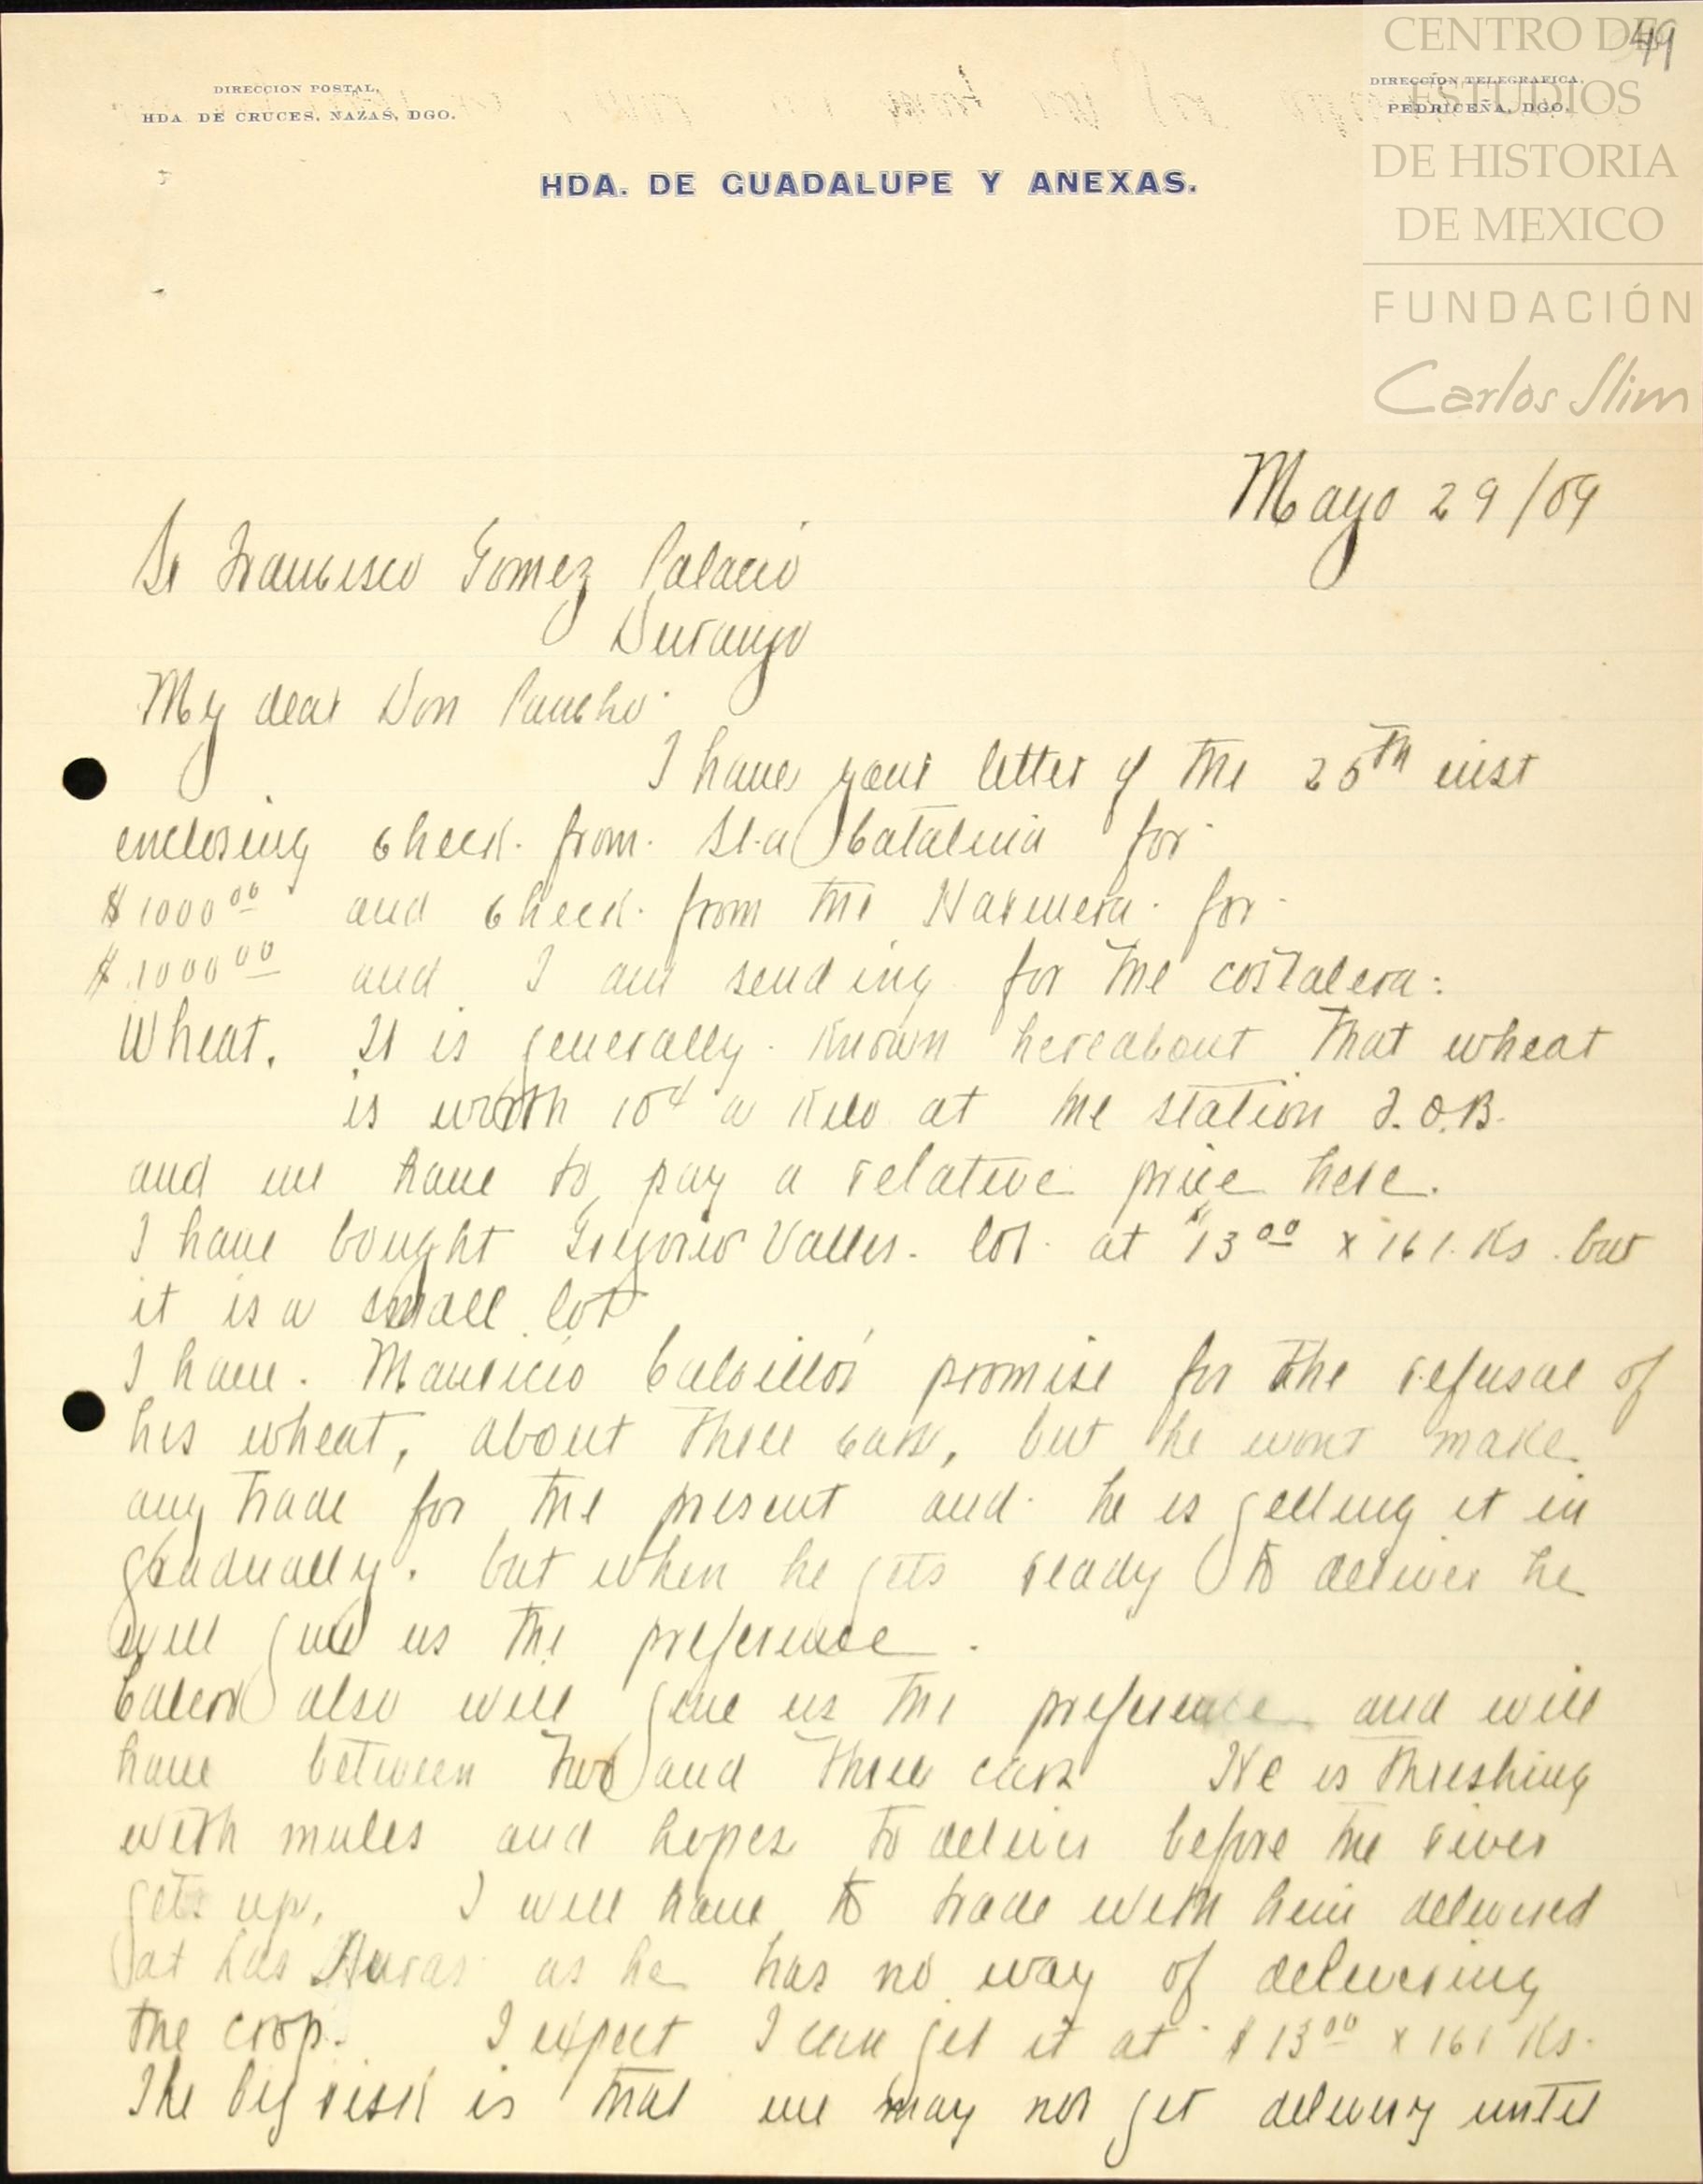 49
CENTRO DE
ESTUDIOS
DE HISTORIA
DE MEXICO
FUNDACIÓN
Carlos Slim
DIRECCION POSTAL,
HDA DE CRUCES, NAZAS, DGO.
DIRECCIÓN TELEGRAFICA,
PEDRICEÑA, DGO.
HDA. DE GUADALUPE Y ANEXAS.
Mayo 29/09
Sr Francisco Gomez Palacio
Durango
My dear Don Pancho
I have your letter of the 25th inst
enclosing check from Sta Catalina for
$1000.00 and check from the Harinera for
$1000.00 and I am sending for the costalera.
Wheat. It is generally known hereabout that wheat
is worth 10¢ a Kilo at the station F.O.B.
and we have to pay a relative price here.
I have bought Gregorio Valles lot at $13.00 x 161 Ks. but
it is a small lot
I have Mauricio promise for the refusal of
his wheat, about three cars, but he wont make
any trade for the present and he is getting it in
gradually. but when he gets ready to deliver he
will give us the preference.
also will give us the preference and will
have between two and three cars He is threshing
with mules and hopes to deliver before the river
gets up. I will have to trade with him delivered
at as he has no way of delivering
the crop. I expect I can get it at $13.00 x 161 Ks.
The big risk is that we may not get delivery until